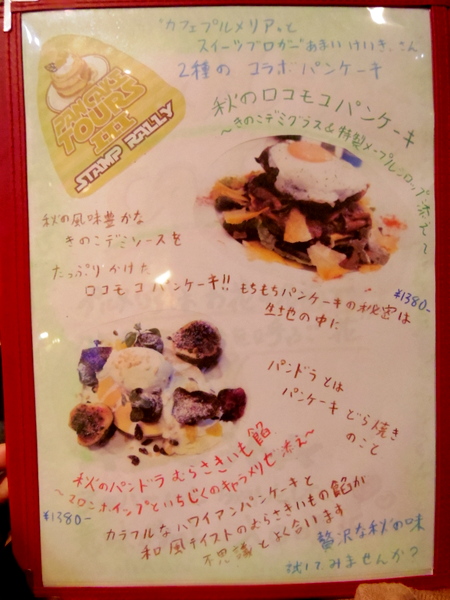 "カフェプルメリア"と
スイーツブロガー"あまいけいき"さん
2種の コラボパンケーキ
PANCAKE
TOURS
III
STAMP RALLY
秋のロコモコパンケーキ
～きのこデミグラス&特製メープルシロップ添え～
秋の風味豊かな
きのこデミソースを
たっぷりかけた
ロコモコパンケーキ!! もちもちパンケーキの秘密は
生地の中に
¥1380-
パンドラとは
パンケーキどら焼き
のこと
秋のパンドラ むらさきいも餡
～マロンホイップといちじくのキャラメリゼ添え～
¥1380-
カラフルなハワイアンパンケーキと
和風テイストのむらさきいもの餡が
不思議とよく合います
贅沢な秋の味
試してみませんか?